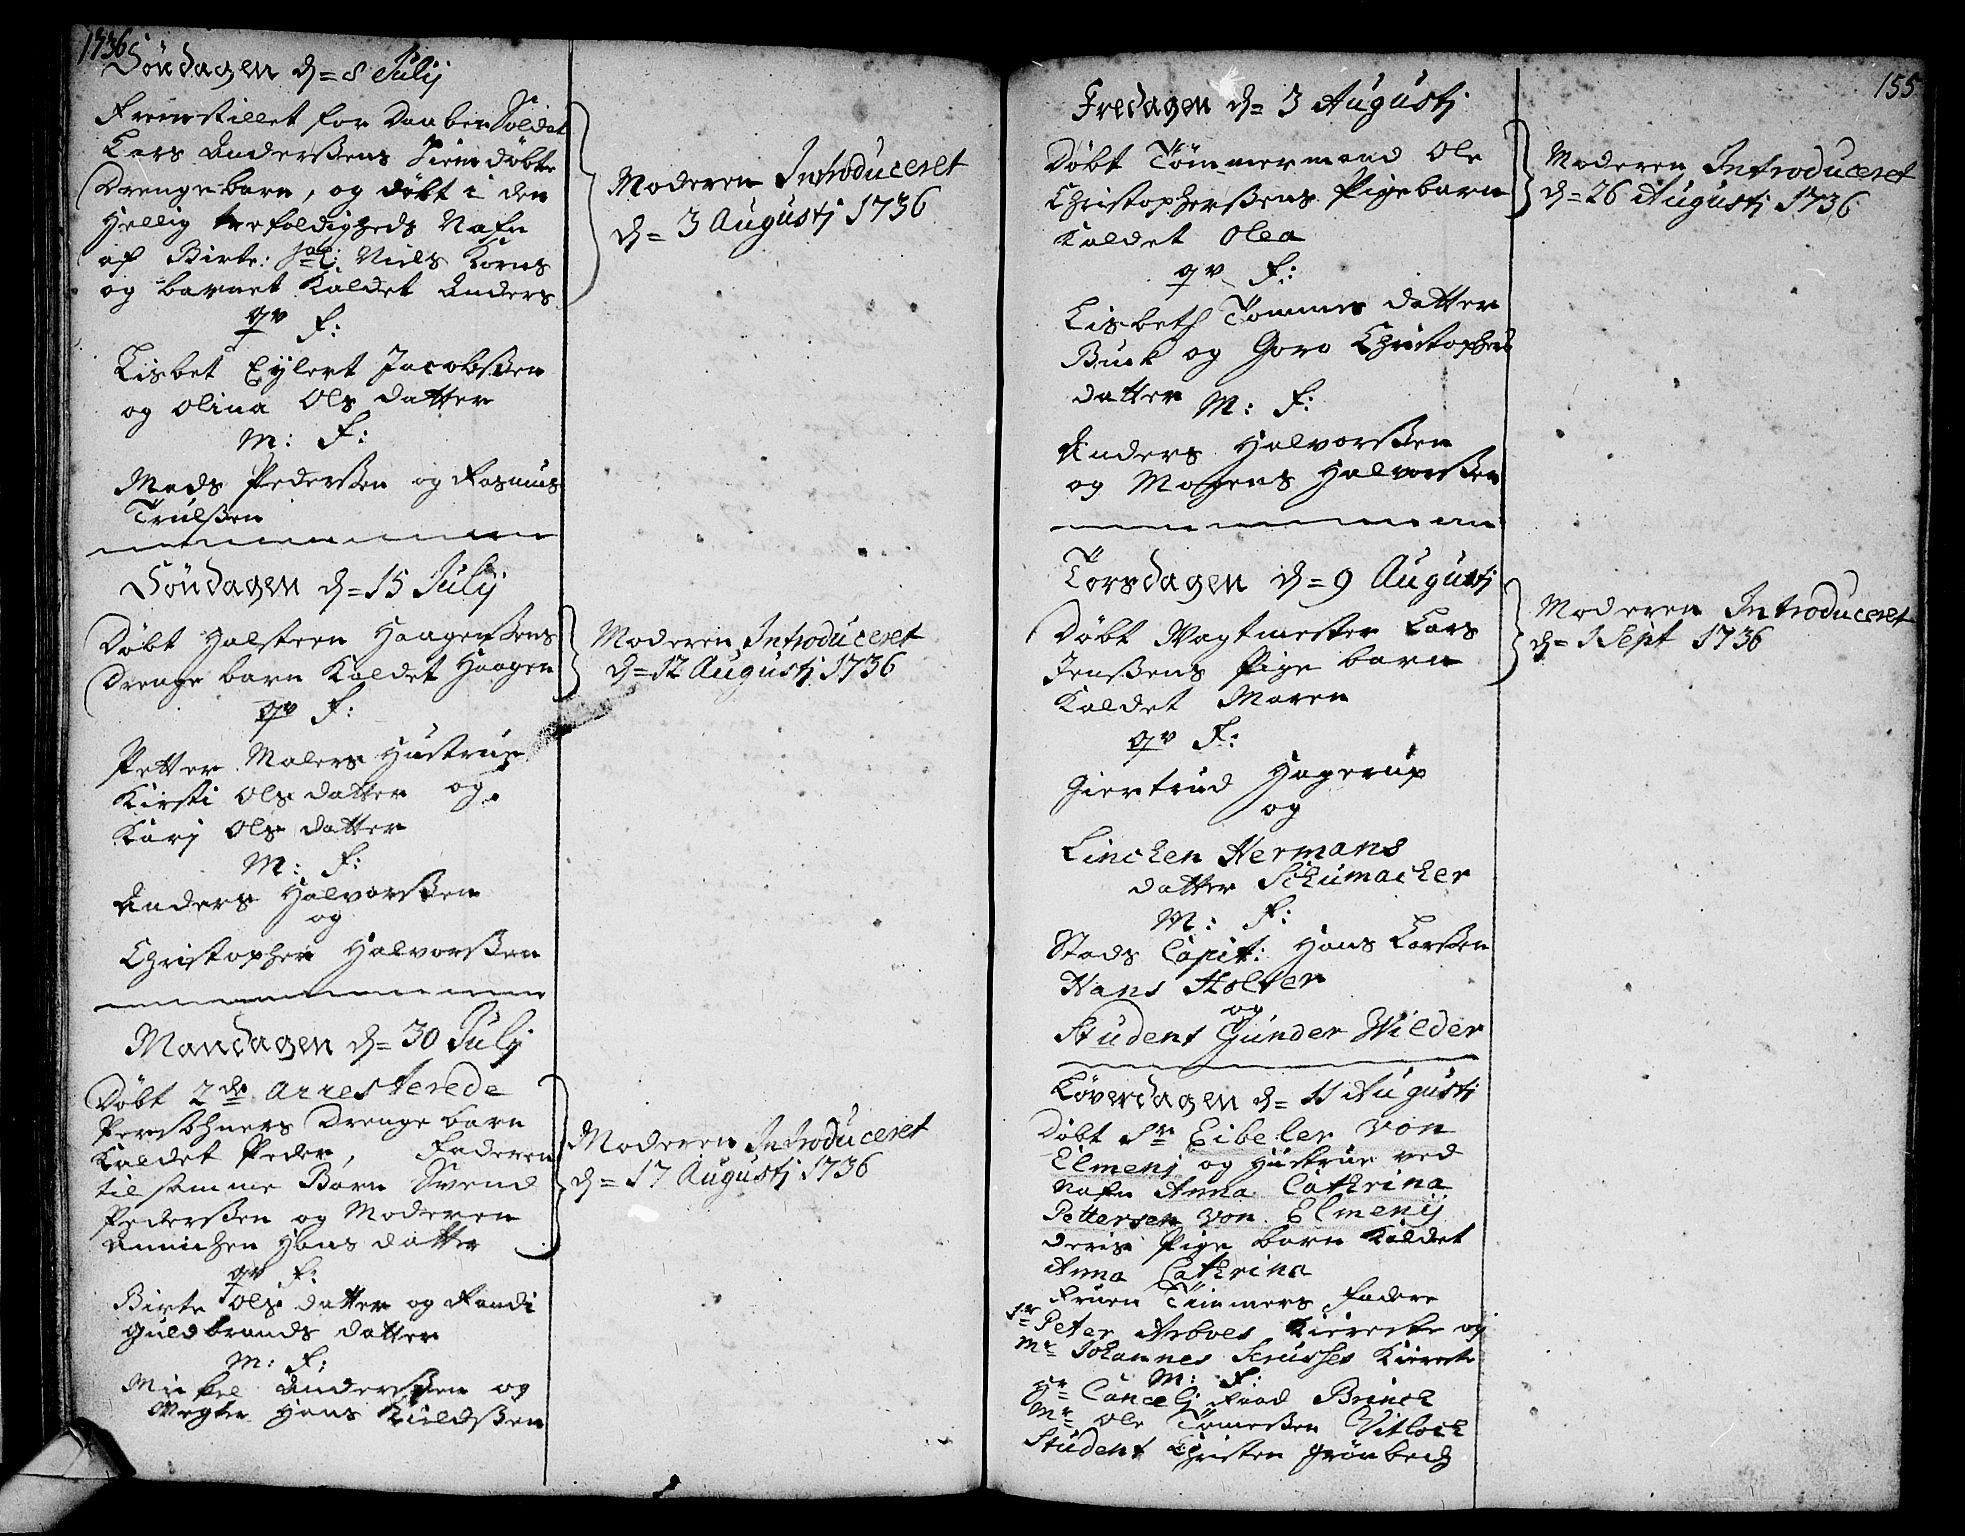 1736
Søndagen d= 8 Julij
Fremstillet for Daaben Soldat
Lars Anderssens Hiemdøbte
Drengebarn, og døbt i den
Hellig trefoldigheds Nafn
af Birte: Niels Korns
og barnet Kaldet Anders
qv F:
Lisbet Eylert Jacobssen
og Olina Ols datter
M: F:
Mads Pederssen og Rasmus
Trulssen
Moderen Introduceret
d= 3 Augustj 1736
Søndagen d= 15 Julij
Døbt Halsteen Haagenssens
Drenge barn Kaldet Haagen
qv F:
Petter Malers Hustrue
Kirsti Ols datter og
Karj Ols datter
M: F:
Anders Halvorssen
og
Christopher Halvorssen
Moderen Introduceret
d= 12 Augustj 1736
Mandagen d= 30 Julij
Døbt 2de arresterede
Persohners Drenge barn
Kaldet Peder, Faderen
til samme Barn Svend
Pederssen og Moderen
Annichen Hans datter
qv F:
Birte Ols datter og Randi
Guldbrands datter
M: F:
Mickel Anderssen og
Wegter Hans Kieldssen
Moderen Introduceret
d= 17 Augustj 1736
155
Fredagen d= 3 Augustj
Døbt Tømmermand Ole
Christopherssens Pigebarn
Kaldet Olea
qv F:
Lisbeth Tommes datter
Buck og Goro Christophers
datter M: F:
Anders Halvorssen
og Mogens Halvorssen
Moderen Introduceret
d= 26 Augustj 1736
Torsdagen d= 9 Augustj
Døbt Vagtmester Lars
Jenssens Pige barn
Kaldet Maren
qv F:
Giertrud Hagerup
og
Linchen Hermans
datter Schumacher
M: F:
Stads Capit: Hans Larssen
Hans Holter
og
Student Gunder Wilder
Moderen Introduceret
d= 1 Sept 1736
Løverdagen d= 11 Augustj
Døbt Sr Eibeler von
Elmenj og Hustrue ved
Nafn Anna Cathrina
Pettersen von Elmenij
deris Pige barn Kaldet
Anna Cathrina
Fruen Tiimmers Fadere
Sr Peter Arboes Kiereste og
Mr Johannes Kiereste
M: F:
Hr Cancelj Raad Brinch
Mr Ole Tomessen Vitloch
Student Christen Grønbech